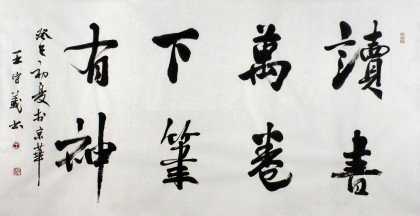 讀書
萬卷
下筆
有神
癸巳初夏於京華
王守義書